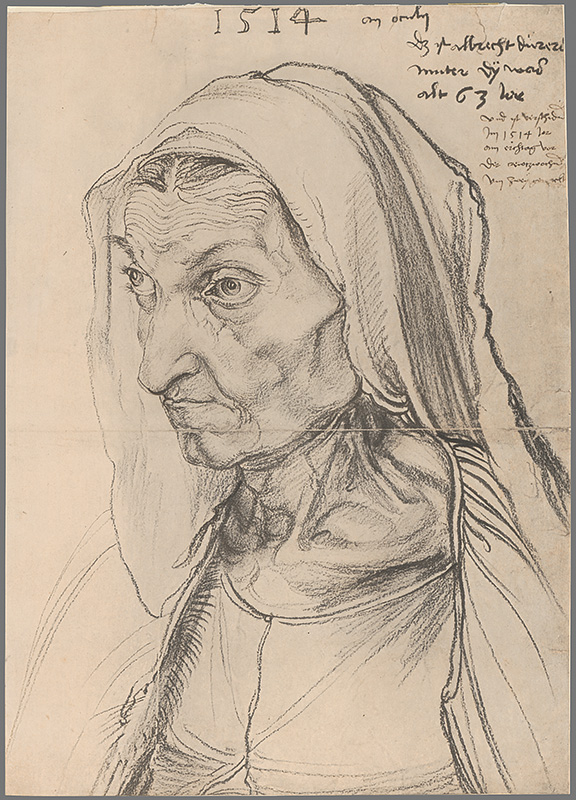 1514 an oculy
Dz ist albrecht dürers
muter dy was
alt 63 Jor
vnd ist verschiden
Im 1514 Jor
am erchtag vor
der crewtzwochen
vm zwey gen nacht